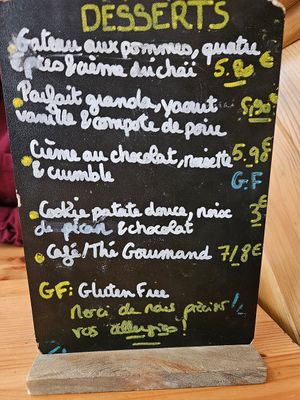 DESSERTS
Gateau aux pommes, quatre
épices & crème de chaï 5.80€
Parfait granola, yaourt 5,50€
vanille & compote de poire
Crème au chocolat, noisette 5.98€
& crumble G.F
Cookie patate douce, noix 3€
de pécan & chocolat
Café/Thé Gourmand 7/8€
GF: Gluten Free
Merci de nous préciser
vos allergies!